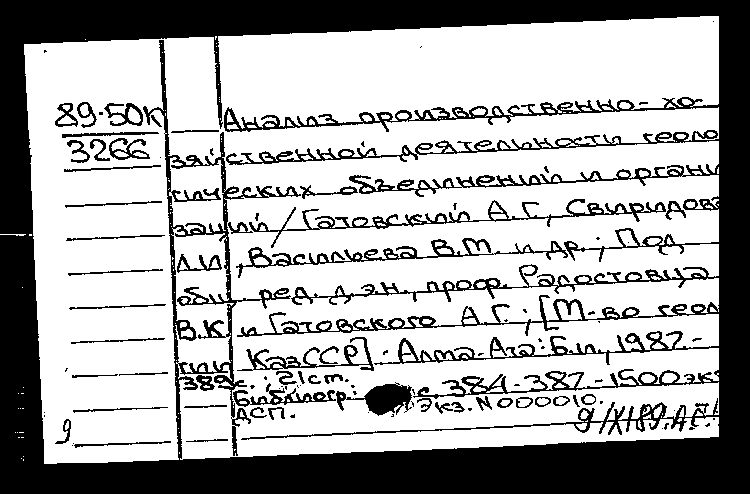 89-50К
3266
Анализ производственно-хо-
зяйственной деятельности геоло
гических объединений и органи
заций / Гатовский А.Г., Свиридова
Л.И., Васильева В.М. и др.; Под
общ. ред. д.э.н., проф. Радостовца
В.К. и Гатовского А.Г.; [М-во геол
гии КазССР]. - Алма-Ата: Б.и., 1987.-
389с.; 21см.
Библиогр.: с. 384-387.-1500экз
ДСП. Экз. N000010.
9 9/XI89.